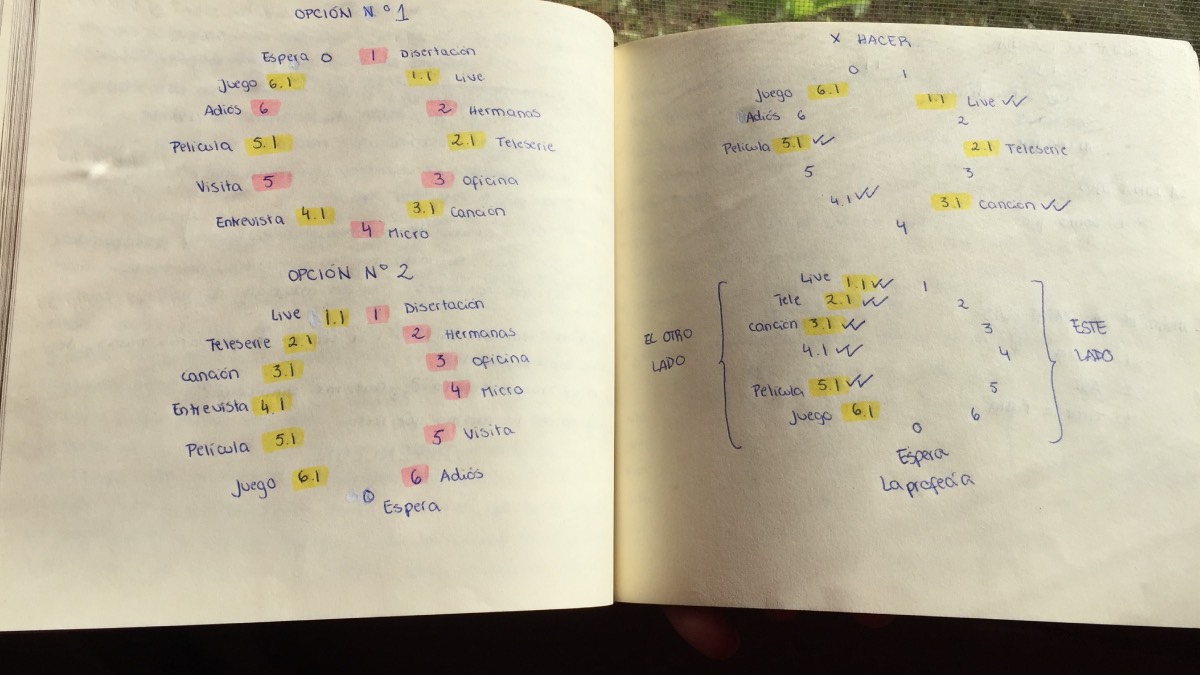 OPCIÓN N°1
Espera 0 1 Disertación
Juego 6.1 1.1 Live
Adiós 6 2 Hermanas
Película 5.1 2.1 Teleserie
Visita 5 3 Oficina
Entrevista 4.1 3.1 Canción
4 Micro
OPCIÓN N°2
Live 1.1 1 Disertación
Teleserie 2.1 2 Hermanas
Canción 3.1 3 Oficina
Entrevista 4.1 4 Micro
Película 5.1 5 Visita
Juego 6.1 6 Adiós
0 Espera
X HACER
0 1
Juego 6.1 1.1 Live ✓✓
Adiós 6 2
Película 5.1 ✓✓ 2.1 Teleserie
5 3
4.1 ✓✓ 3.1 Canción ✓✓
4
Live 1.1 ✓✓ 1
Tele 2.1 ✓✓ 2
Canción 3.1 ✓✓ 3
EL OTRO LADO
4.1 ✓✓ 4
ESTE LADO
Película 5.1 ✓✓ 5
Juego 6.1 6
0
Espera
La profecía